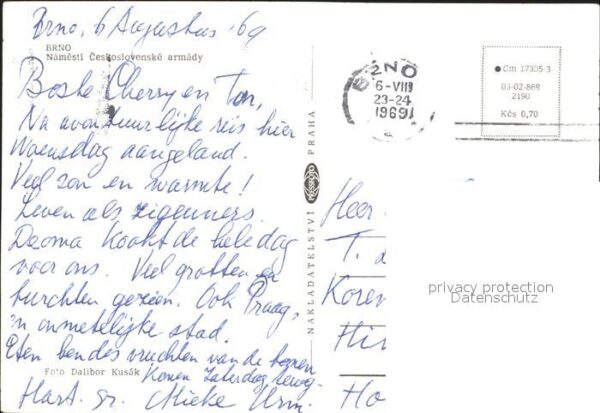 Brno, 6 Augustus '69
BRNO
Náměstí Československé armády
Beste Cherry en Ton,
Na avontuurlijke reis hier
Woensdag aangeland.
Veel zon en warmte!
Leven als zigeuners.
Deoma kookt de hele dag
voor ons. Veel grotten en
burchten gezien. Ook Praag,
'n onmetelijke stad.
Eten bendes vruchten van de bomen
Foto Dalibor Kusák
Komen Zaterdag terug.
Hart. gr. Mieke
NAKLADATELSTVÍ PRESSFOTO PRAHA
BRNO
6-VIII
23-24
1969
Cm 17335-3
03-02-869
2190
Kčs 0,70
Heer
T.
Koren
Hil
Ho
privacy protection
Datenschutz